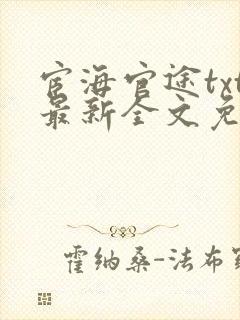 宦海官途txt
最新全文免
霍纳桑-法布